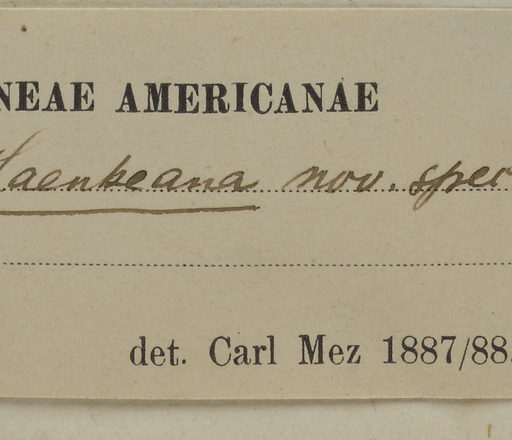 NEAE AMERICANAE
Haenkeana nov. spec
det. Carl Mez 1887/88.